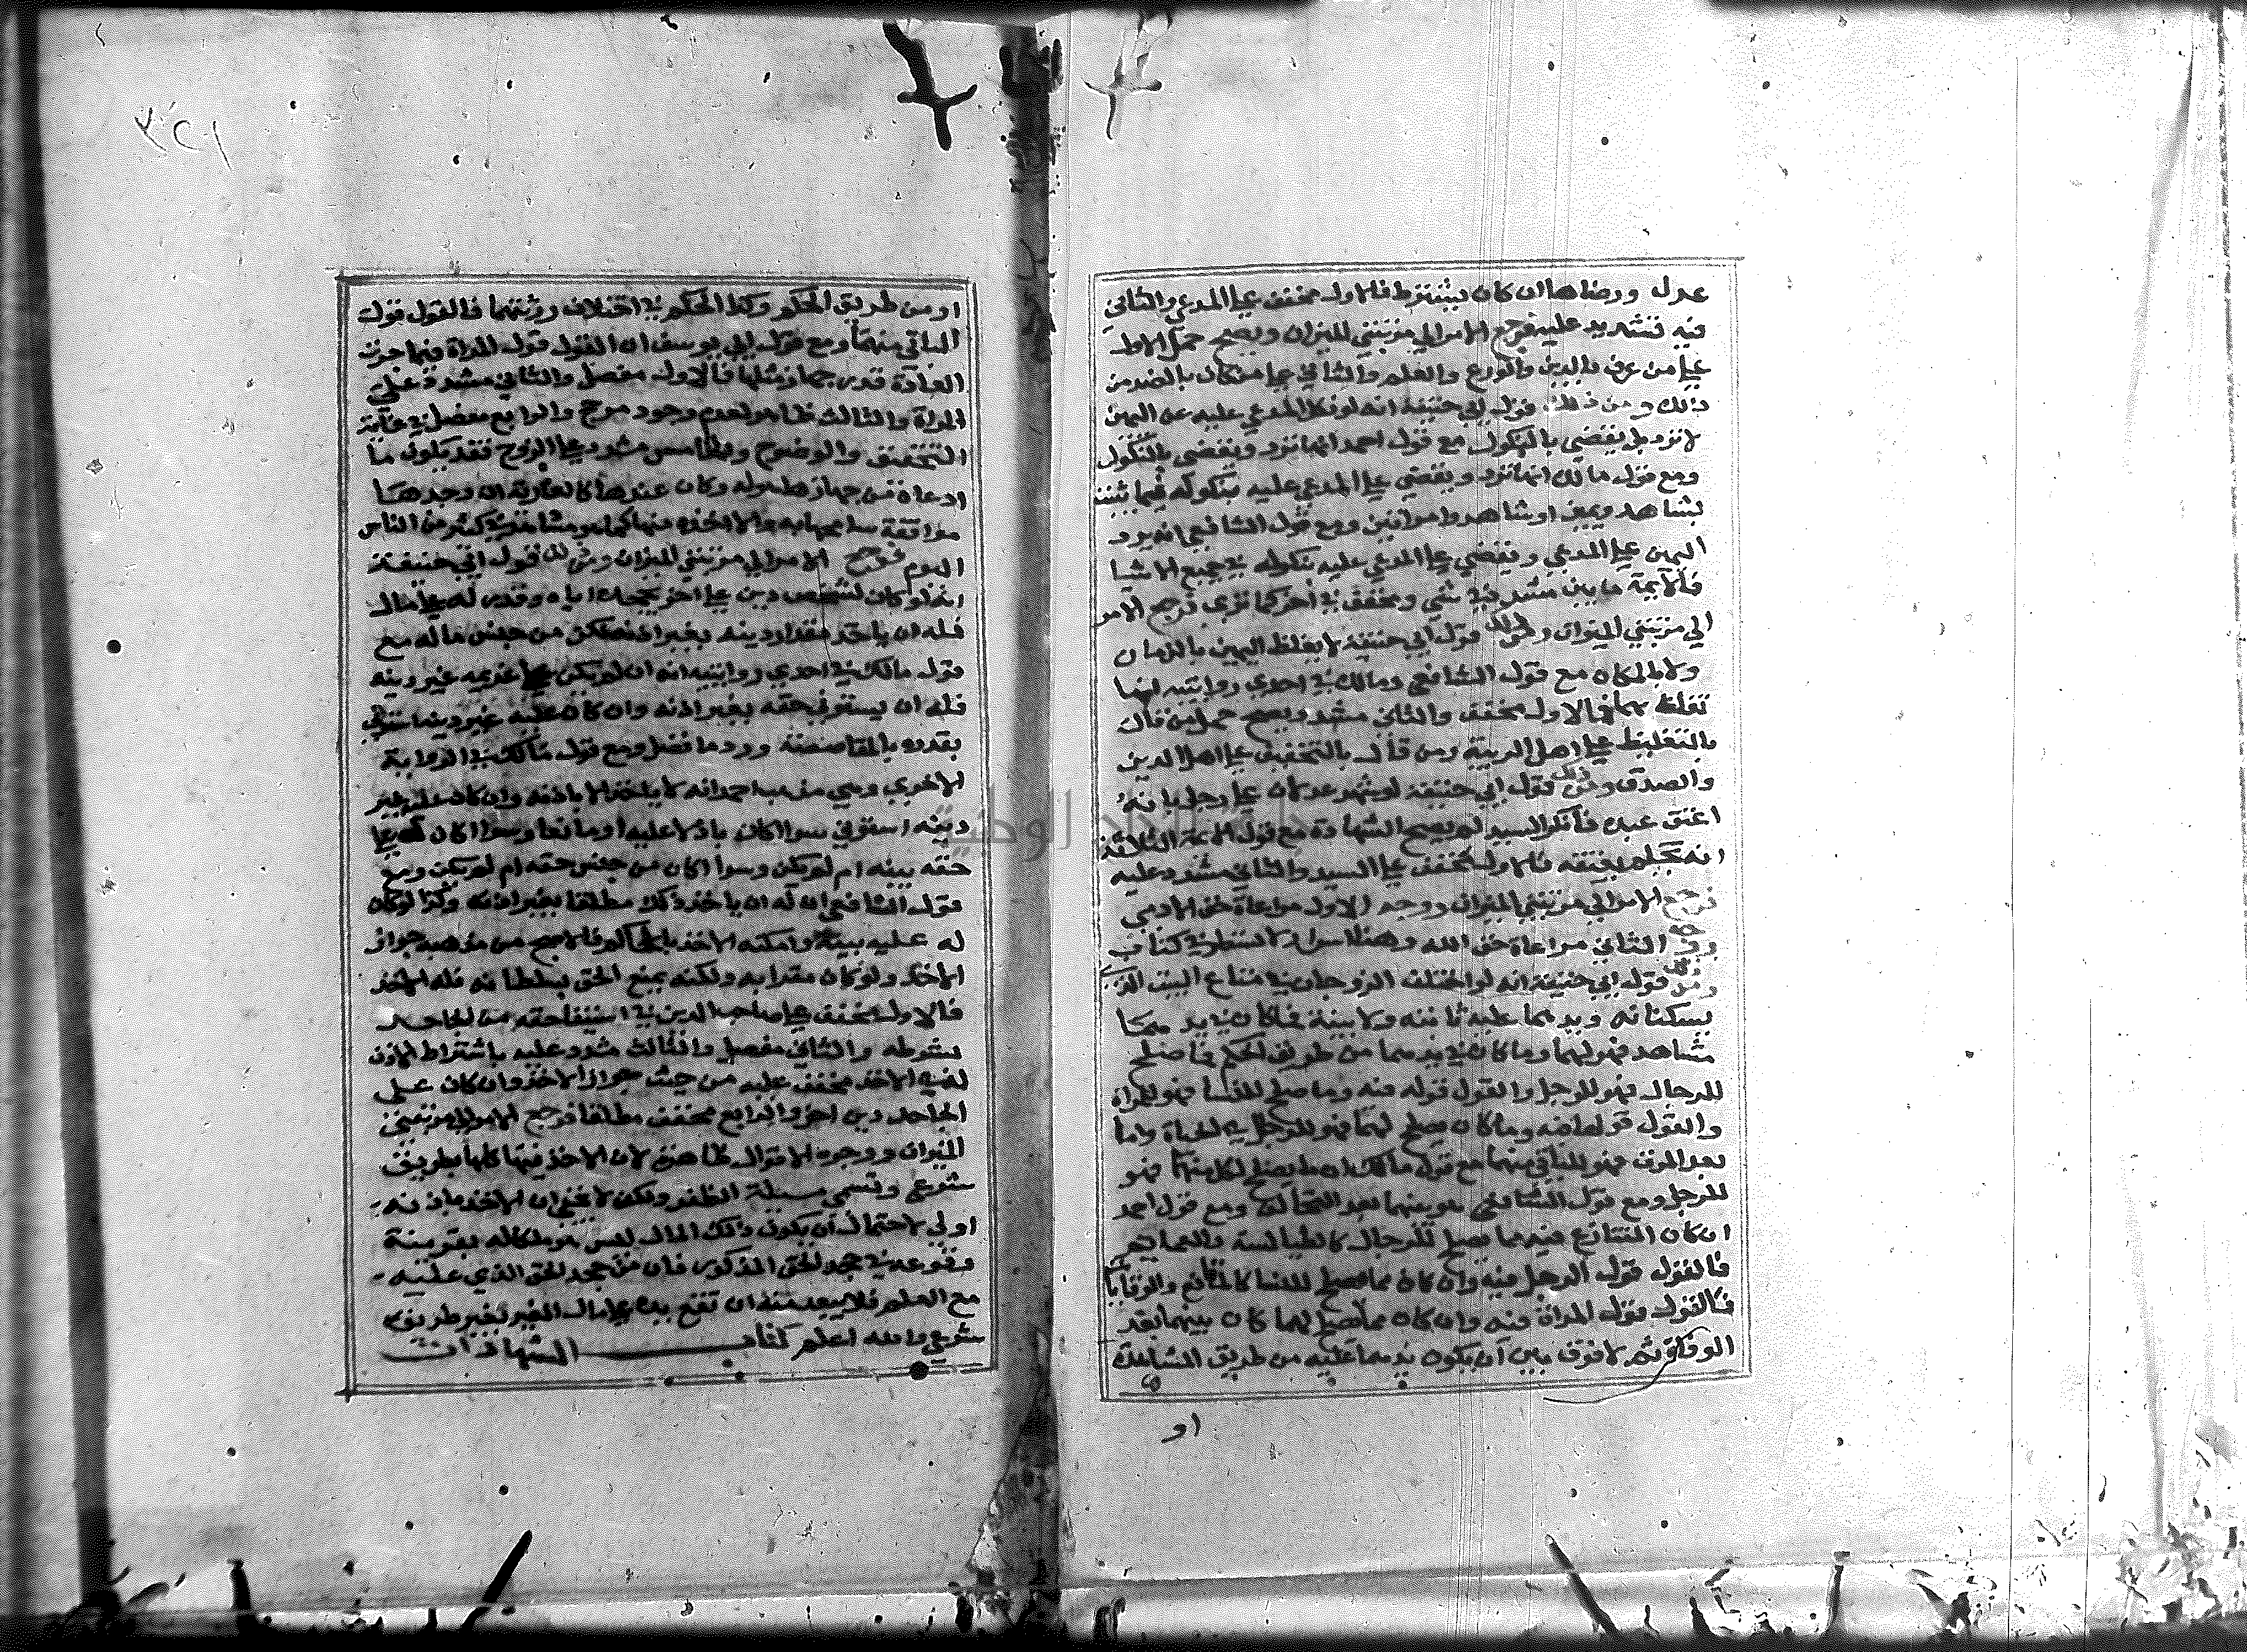 عدل ورضاها ان كان يشترط فالاول مخفف علي المدعي والثاني
فيه تشديد عليه فرجع الامر الي مرتبتي الميزان ويصح حمل الاول
علي من عرف بالدين والورع والعلم والثاني علي من كان بالضد من
ذلك ومن ذلك قول ابي حنيفة انه لو نكل المدعي عليه عن اليمين
لا ترد بل يقضي بالنكول مع قول احمد انها ترد ويقضي بالنكول
ومع قول مالك انها ترد ويقضي علي المدعي عليه بنكوله فيما يثبت
بشاهد ويمين او شاهد وامراتين ومع قول الشافعي انه يرد
اليمين علي المدعي ويقضي علي المدعي عليه بنكوله في جميع الاشيا
فالايمة ما بين مشدد في شي ومخفف في اخر كما تري فرجع الامر
الي مرتبتي الميزان ومن ذلك قول ابي حنيفة لا يغلظ اليمين بالزمان
ولا بالمكان مع قول الشافعي ومالك في احدي روايتيه انها
تغلظ بهما فالاول مخفف والثاني مشدد ويصح حمل من قال
بالتغليظ علي اهل الريبة ومن قال بالتخفيف علي اهل الدين
والصدق ومن ذلك قول ابي حنيفة لو شهد عدلان علي رجل بانه
اعتق عبده فانكر السيد لم يصح الشهادة مع قول الايمة الثلاثة
انه يحكم بعتقه فالاول مخفف علي السيد والثاني مشدد عليه
فرجع الامر الي مرتبتي الميزان ووجه الاول مراعاة حق الادمي
ووجه الثاني مراعاة حق الله وهذا اسرار لا تسطر في كتاب
ومن ذلك قول ابي حنيفة انه لو اختلف الزوجان في متاع البيت الذي
يسكنانه ويدهما عليه ثابته ولا بينة فما كان في يدهما
مشاهد فهو لهما وما كان في يدهما من طريق الحكم فما صلح
للرجال فهو للرجل والقول قوله فيه وما صلح للنسا فهو للمراة
والقول قولها فيه وما كان يصلح لهما فهو للرجل في الحياة واما
بعد الموت فهو للباقي منهما مع قول مالك ان ما يصلح لكل منهما فهو
للرجل ومع قول الشافعي هو بينهما بعد التحالف ومع قول احمد
ان كان المتنازع فيه مما يصلح للرجال كالطيالسة والعمايم
فالقول قول الرجل فيه وان كان مما يصلح للنسا كالمقانع والوقايا
فالقول قول المراة فيه وان كان مما يصلح لهما كان بينهما بعد
الوفاة ثم لا فرق بين ان يكون يدهما عليه من طريق المشاهدة
او
٣٢١
او من طريق الحكم وكذا الحكم في اختلاف ورثتهما فالقول قول
الباقي منهما ومع قول ابي يوسف ان القول قول المراة فيما جرت
العادة قدر جهاز مثلها فالاول مفصل والثاني مشدد علي
المراة والثالث ظاهر لعدم وجود مرجح والرابع مفصل في غاية
التحقيق والوضوح والخامس مشدد علي الزوج فقد يكون ما
ادعاه من جهاز هاله وكان عندها كالعارية ان وجدها
موافقة سامحها به والا اخذه منها كما هو مشاهد في كثير من الناس
اليوم فرجع الامر الي مرتبتي الميزان ومن ذلك قول ابي حنيفة
انه لو كان لشخص دين علي اخر يجحده اياه وقدر له علي مال
فله ان ياخذ مقدار دينه بغير اذنه لكن من جنس ماله مع
قول مالك في احدي روايتيه انه ان لم يكن علي غريمه غير دينه
فله ان يستوفي حقه بغير اذنه وان كان عليه غير دينه استوفي
بقدره بالمقاصصة ورد ما فضل ومع قول مالك في الرواية
الاخري وهي مذهب احمد انه لا ياخذ الا باذنه وان كان عليه غير
دينه استوفي سوا اكان باذلا عليه او مانعا وسوا اكان له علي
حقه بينه ام لم يكن وسوا اكان من جنس حقه ام لم يكن ومع
قول الشافعي ان له ان ياخذ ذلك مطلقا بغير اذنه وكذا لو كان
له عليه بينة وامكنه الاخذ بالحاكم فالاصح من مذهبه جواز
الاخذ ولو كان مقرا به ولكنه يمنع الحق بسلطانه فله الاخذ
فالاول مخفف علي صاحب الدين في استيفا حقه من الجاحد
بشرطه والثاني مفصل والثالث مشدد عليه باشتراط الاذن
له في الاخذ مخفف عليه من حيث جواز الاخذ وان كان علي
الجاحد دين اخر والرابع مخفف مطلقا فرجع الامر الي مرتبتي
الميزان ووجوه الاقوال ظاهرة لان الاخذ فيها كلها بطريق
شرعي وتسمي مسيلة الظفر ولكن لا يخفي ان الاخذ باذنه
اولي لاحتمال ان يكون ذلك المال ليس هو ملكا له بقرينة
وقوعه في جحد الحق المذكور فان من جحد الحق الذي عليه
مع العلم فلا يبعد منه ان تقع يده علي مال الغير بغير طريق
شرعي والله اعلم كتاب الشهادات